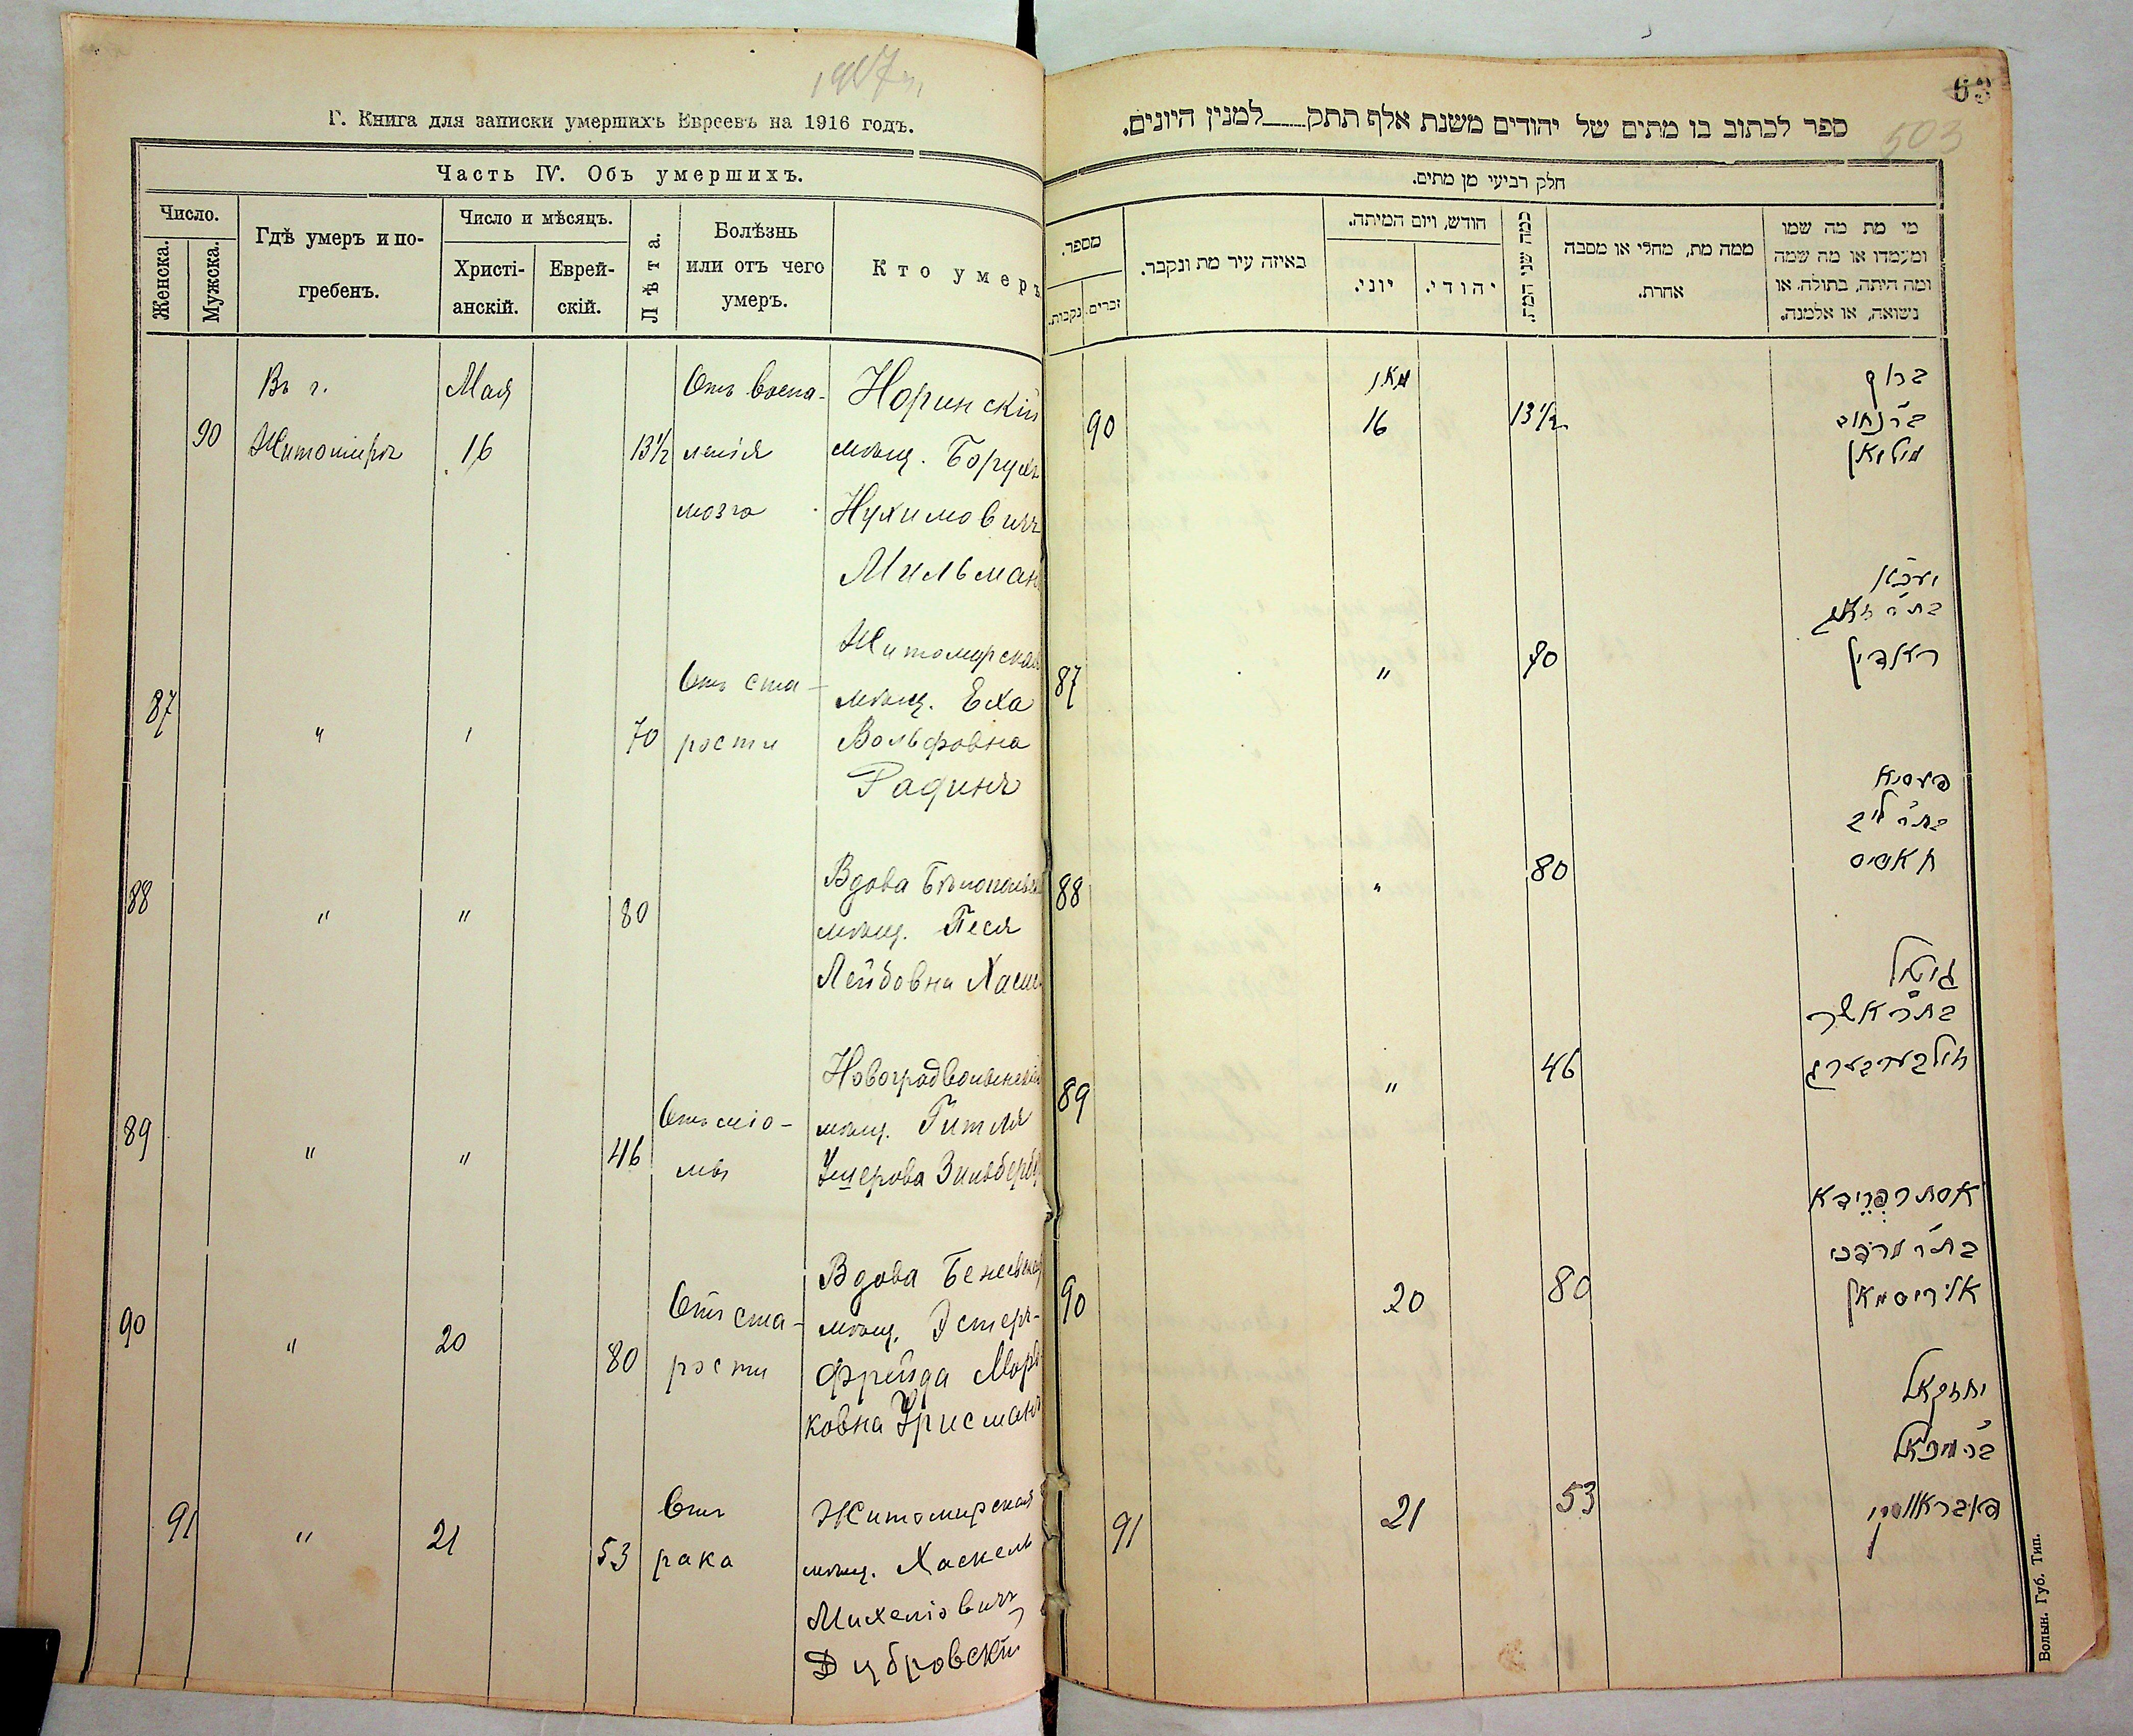 1917 г.
Г. Книга для записки умершихъ Евреевъ на 1916 годъ.
Часть IV. Объ умершихъ.
Число.
Женска.
Мужска.
Гдѣ умеръ и по-
гребенъ.
Число и мѣсяцъ.
Христі-
анскій.
Еврей-
скій.
Лѣта.
Болѣзнь
или отъ чего
умеръ.
Кто умеръ
Въ г. Мая Отъ воспа- Норинскій
90 Житомирѣ 16 13½ ленія мѣщ. Борухъ
мозга Нухимовичъ
Мильманъ
Житомирская
Отъ ста- мѣщ. Еха
87 " " 70 рости Вольфовна
Радинъ
Вдова
88 " " 80 мѣщ. Песя
Лейбовна
Новоградволынская
89 мѣщ. Гитля
" " 46 Ушерова Зильберберг
Вдова
90 Отъ ста- мѣщ. Эстеръ-
" 20 80 рости Фрейда Морд-
ковна Урисманъ
Отъ Житомирская
91 " 21 53 рака мѣщ. Хаскель
Михеліовичъ
Дубровскій
63
503
ספר לכתוב בו מתים של יהודים משנת אלף תתק___למנין היונים.
חלק רביעי מן מתים.
מספר.
נקבות.
זכרים.
באיזה עיר מת ונקבר.
חודש, ויום המיתה.
יוני.
יהודי.
כמה שני המת.
ממה מת, מחלי או מסבה
אחרת.
מי מת מה שמו
ומעמדו או מה שמה
ומה היתה, בתולה, או
נשואה, או אלמנה.
מאי ברוך
90 16 13½ בר נחום
מילמאן
87 " 70 ראדין
פעסיא
בת ר' ליב
88 " 80 חאסיס
גיטל
בת ר' אשר
89 " 46 זילבערבערג
אסתר פריידא
בת ר' מרדכי
90 20 80 אוריסמאן
יחזקאל
בר מיכאל
91 21 53 דובראווסקי
Волын. Губ. Тип.